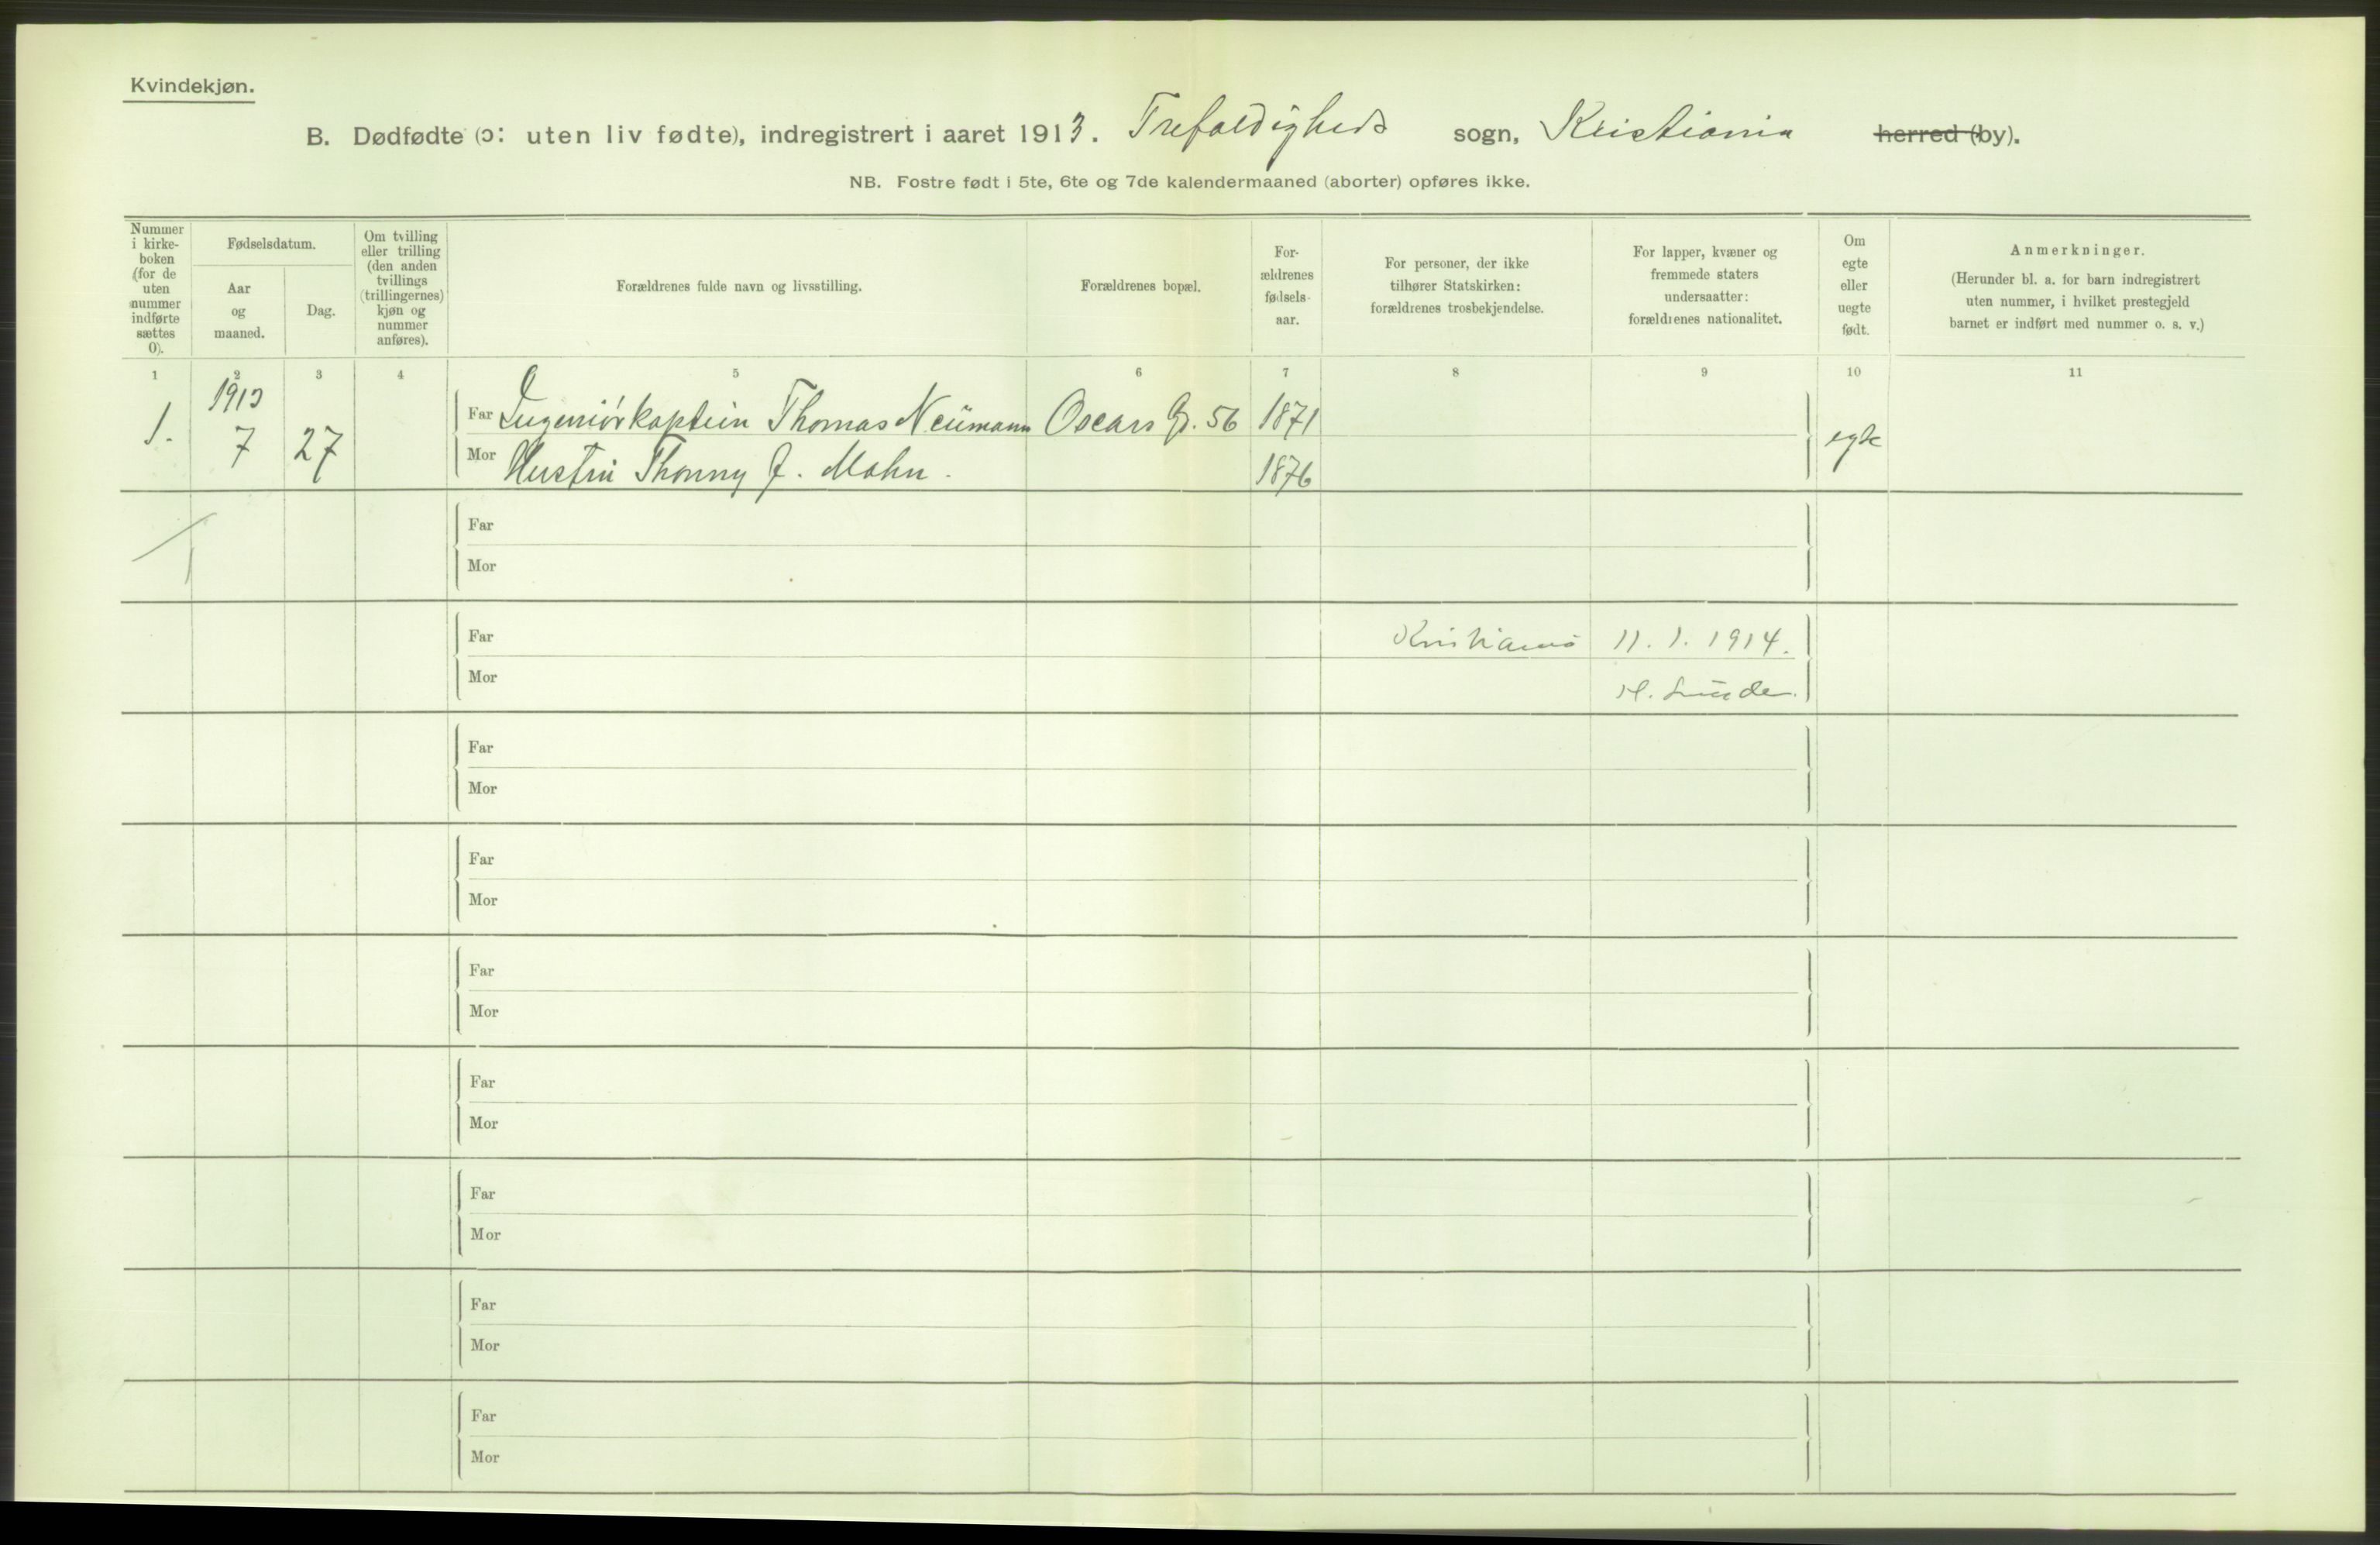 Kvindekjøn.
B. Dødfødte (ɔ: uten liv fødte), indregistrert i aaret 1913. Trefoldigheds sogn, Kristiania herred (by).
NB. Fostre født i 5te, 6te og 7de kalendermaaned (aborter) opføres ikke.
Nummer
i kirke-
boken
(for de
uten
nummer
indførte
sættes
0).
Fødselsdatum.
Aar
og
maaned.
Dag.
Om tvilling
eller trilling
(den anden
tvillings
(trillingernes)
kjøn og
nummer
anføres).
Forældrenes fulde navn og livsstilling.
Forældrenes bopæl.
For-
ældrenes
fødsels-
aar.
For personer, der ikke
tilhører Statskirken:
forældrenes trosbekjendelse.
For lapper, kvæner og
fremmede staters
undersaatter:
forældrenes nationalitet.
Om
egte
eller
uegte
født.
Anmerkninger.
(Herunder bl. a. for barn indregistrert
uten nummer, i hvilket prestegjeld
barnet er indført med nummer o. s. v.)
1 2 3 4 5 6 7 8 9 10 11
1913
1. 7 27
Far Ingeniørkaptein Thomas Neumann Oscars G. 56 1871
egte
Mor Hustru Thonny J. Mohn. 1876
Far
Mor
Far Kristiania 11.1.1914.
Mor H. Lunde.
Far
Mor
Far
Mor
Far
Mor
Far
Mor
Far
Mor
Far
Mor
Far
Mor